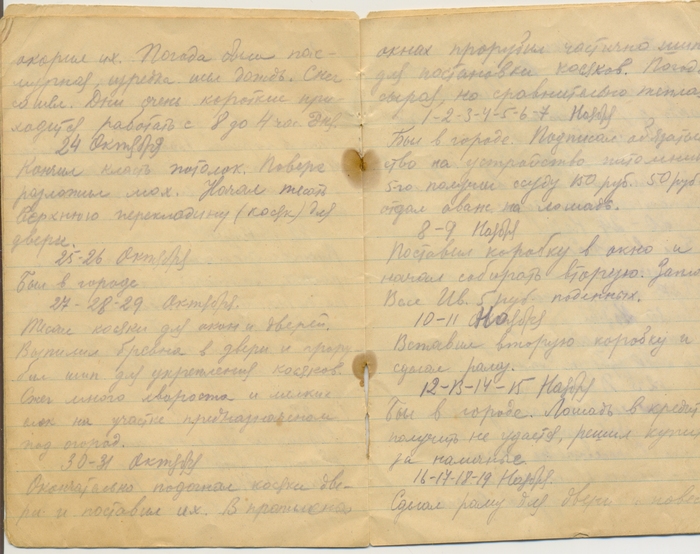 окорил их. Погода была пас-
мурная, изредка шел дождь. Снег
Дни очень короткие при-
ходится работать с 8 до 4 час дня.
24 Октября
Кончил класть потолок. Поверх
разложил мох. Начал тесать
верхнюю перекладину (косяк) для
двери.
25-26 Октября
Был в городе
27-28-29 Октября.
Тесал косяки для окон и дверей.
Выпилил бревна в двери и прору-
бил шип для укрепления косяков.
Сжег много хвороста и мелкие
на участке предназначеном
под огород.
30-31 Октября
Окончательно подогнал косяки две-
ри и поставил их. В
окнах прорубил частично шип
для постановки косяков. Погода
сырая, но сравнительно теплая
1-2-3-4-5-6-7 Ноября
Был в городе. Подписал обязатель
ство на устройство питомника
5го получил ссуду 150 руб. 50 руб
отдал аванс на лошадь.
8-9 Ноября
Поставил коробку в окно и
начал собирать вторую.
Ив. 5 руб. поденных.
10-11 Ноября
Вставил вторую коробку и
сделал раму.
12-13-14-15 Ноября
Был в городе. Лошадь в кредит
получить не удается, решил купить
за наличные.
16-17-18-19 Ноября.
Сделал раму для двери и